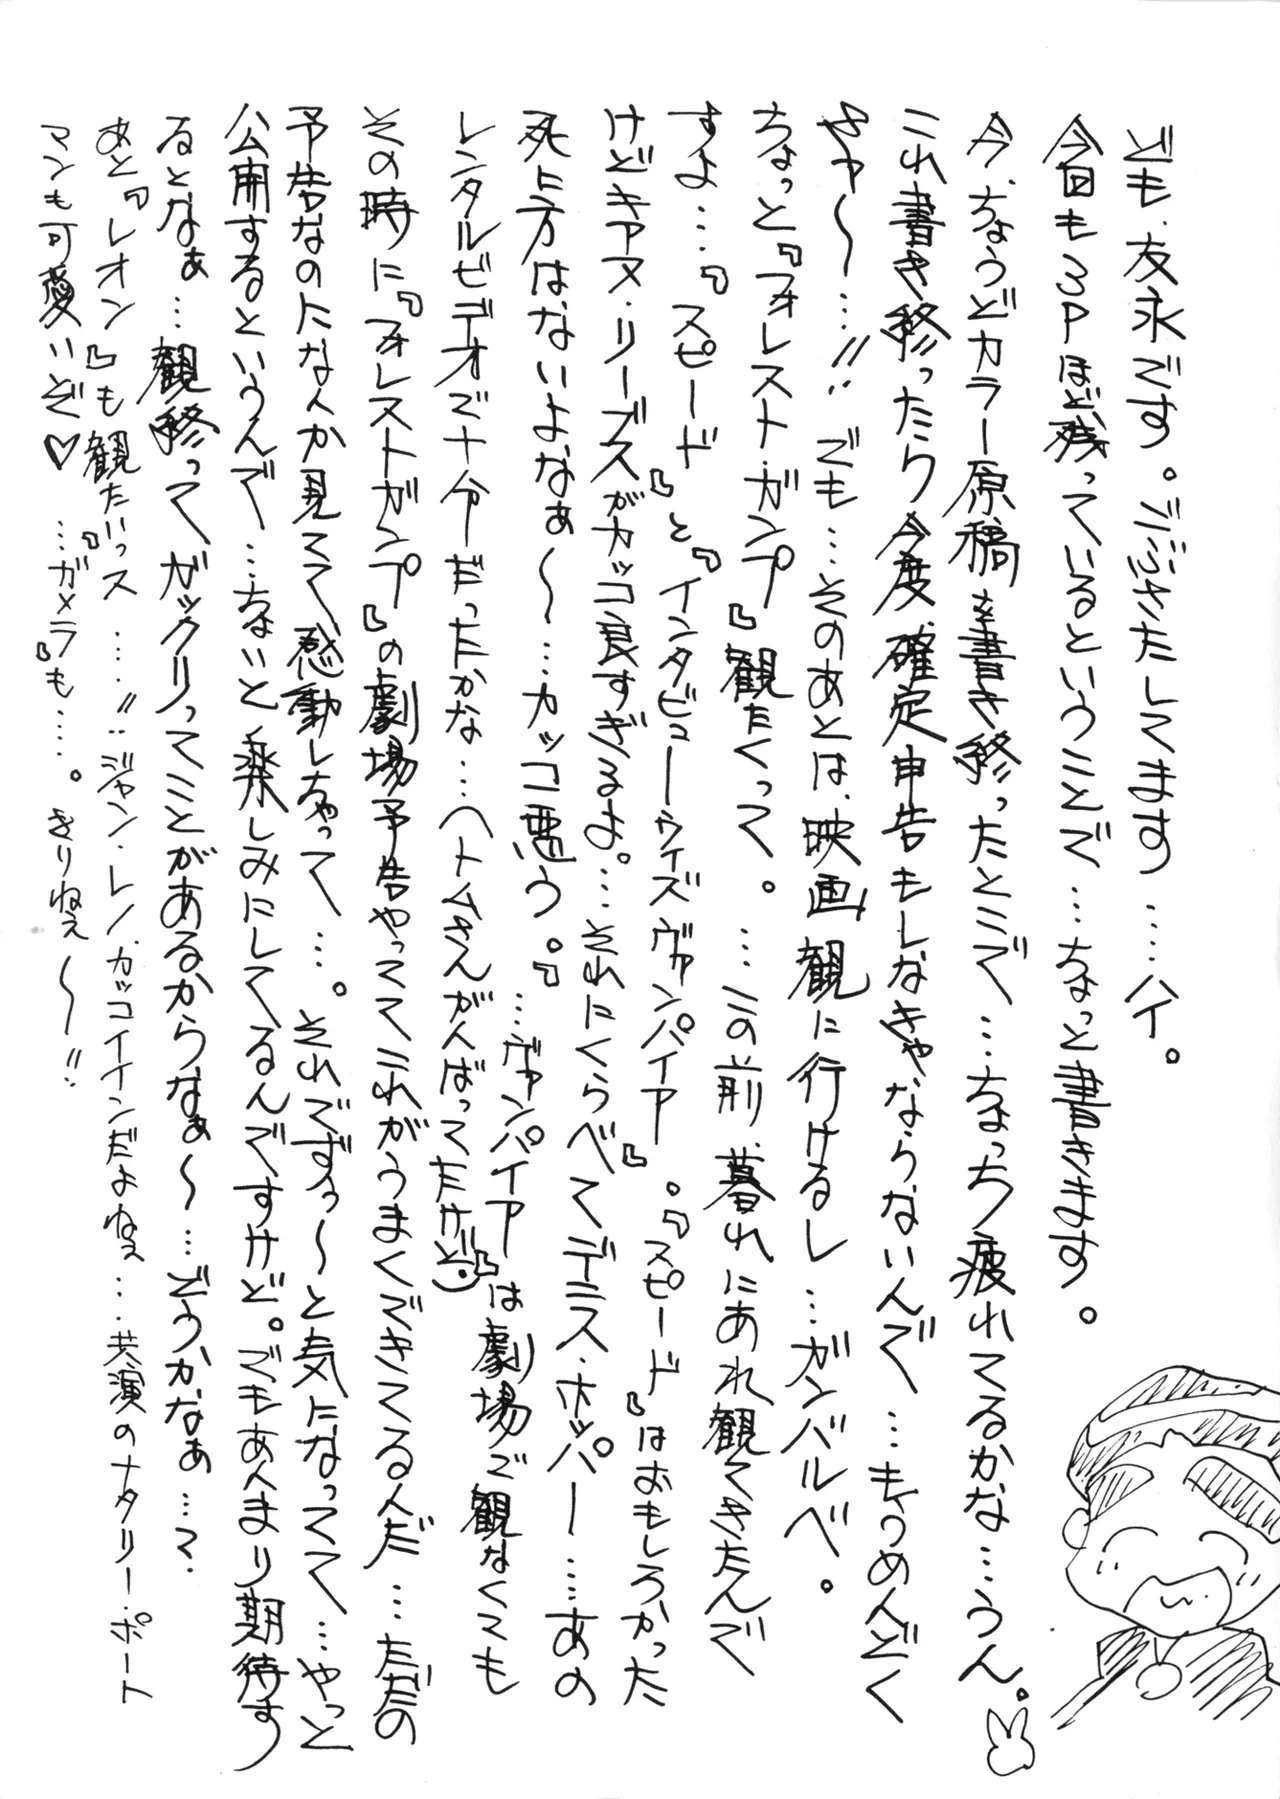 ども、友永です。ごぶさたしてます……ハイ。
今回も3Pほど残っているということで…ちょっと書きます。
今、ちょうどカラー原稿を書き終ったとこで…ちょっち疲れてるかな…うん。
これ書き終ったら今度、確定申告もしなきゃならないんで…もうめんどく
さァ〜…!!でも…そのあとは、映画観に行けるし…ガンバルべ。
ちょっと『フォレスト・ガンプ』観たくって。…この前、暮れにあれ観てきたんで
すよ…『スピード』と『インタビューウィズヴァンパイア』。『スピード』はおもしろかった
けどキアヌ・リーブスがカッコ良すぎるよ。…それにくらべてデニス・ホッパー……あの
死に方はないよなぁ〜…カッコ悪う。』…ヴァンパイア』は劇場で観なくても
レンタルビデオで十分ーだったかな…(トムさんがんばってたけど)
その時に『フォレストガンプ』の劇場予告やっててこれがうまくできてるんだ…ただの
予告なのになんか見てて感動しちゃって…。それでずぅ〜と気になってて…やっと
公開するというんで…ちょいと楽しみにしてるんですけど。でもあんまり期待す
るとなぁ…観終ってガックリってことがあるからなぁ〜…どうかなぁ…て
あと『レオン』も観たいっス…!!ジャン・レノ、カッコイインだよねぇ…共演のナタリー・ポート
マンも可愛いぞ♡…『ガメラ』も…。きりねぇ〜!!